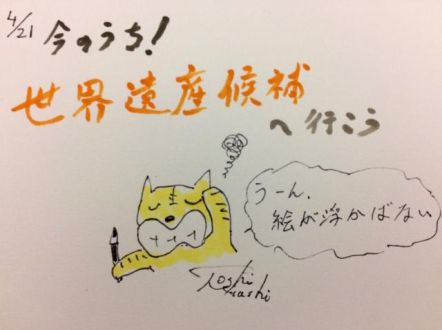 4/21
今のうち!
世界遺産候補
へ行こう
うーん、
絵が浮かばない
Toshi